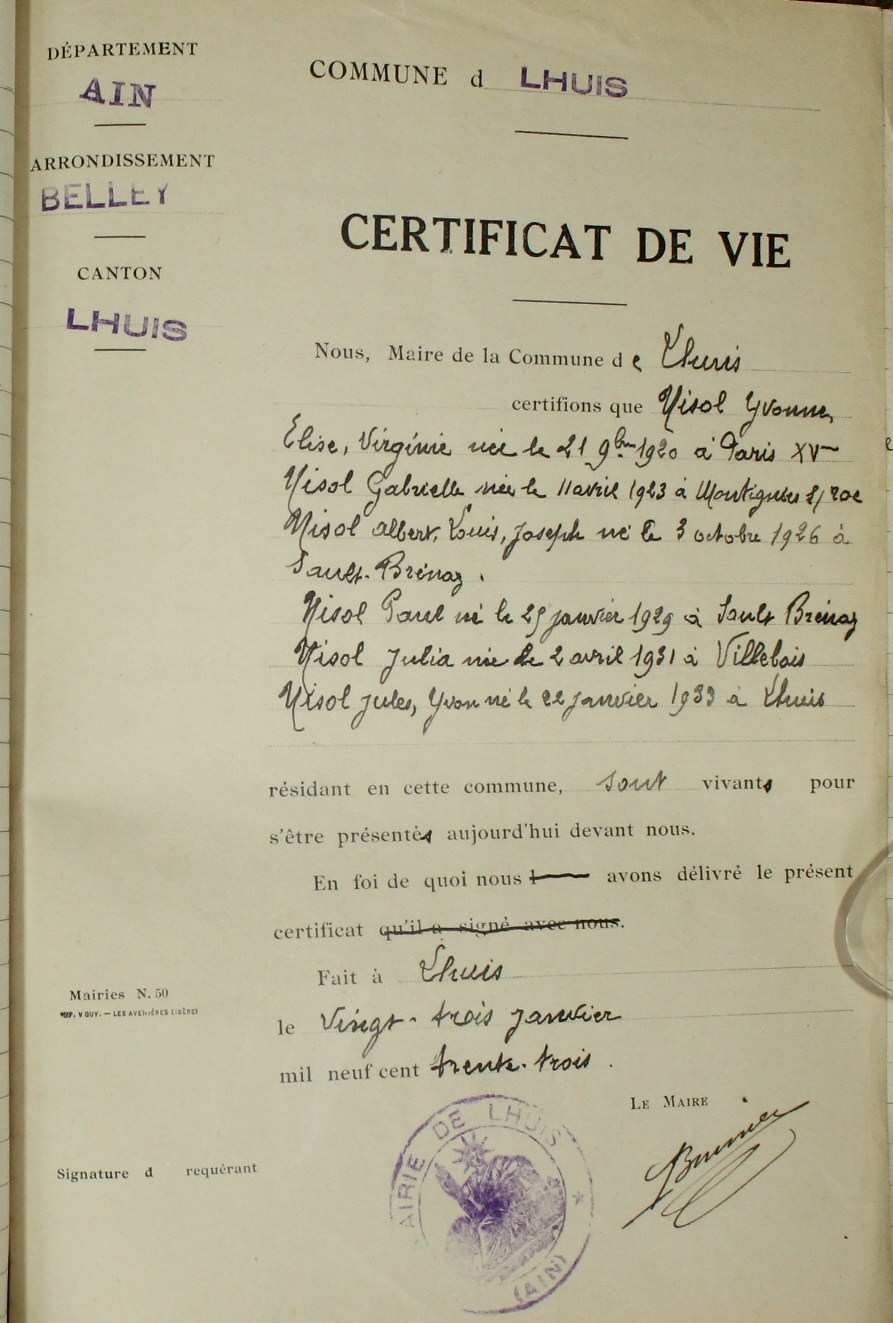 DÉPARTEMENT
AIN
ARRONDISSEMENT
BELLEY
CANTON
LHUIS
COMMUNE d LHUIS
CERTIFICAT DE VIE
Nous, Maire de la Commune de Lhuis
certifions que Nisol Yvonne,
Elise, Virginie née le 21 9bre 1920 à Paris XVme
Nisol Gabrielle née le 11 avril 1923 à Montignies s/roc
Nisol Albert, Louis, Joseph né le 3 octobre 1926 à
Sault-Brénaz.
Nisol Paul né le 25 janvier 1929 à Sault Brénaz
Nisol Julia née le 2 avril 1931 à Villebois
Nisol Jules, Yvon né le 22 janvier 1933 à Lhuis
résidant en cette commune, sont vivants pour
s'être présentés aujourd'hui devant nous.
En foi de quoi nous avons délivré le présent
certificat qu'il a signé avec nous.
Fait à Lhuis
le vingt-trois janvier
mil neuf cent trente-trois.
Mairies N. 50
IMP. V GUY. — LES AVENIÈRES (ISÈRE)
LE MAIRE
Signature d requérant
MAIRIE DE LHUIS
(AIN)